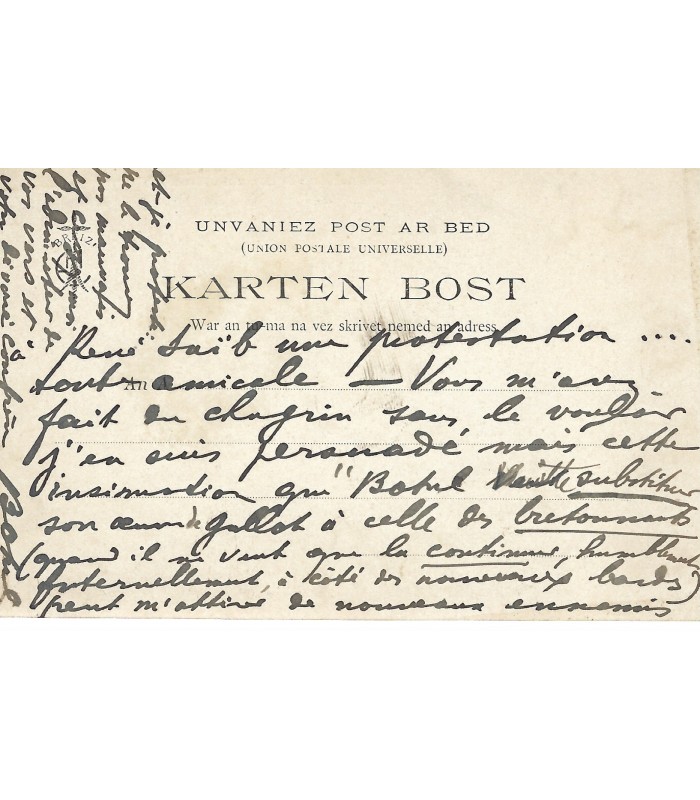 UNVANIEZ POST AR BED
(UNION POSTALE UNIVERSELLE)
KARTEN BOST
War an tu-ma na vez skrivet nemed an adress.
à René Saïb une protestation ....
toute amicale — Vous m'avez
fait du chagrin sans le vouloir
j'en suis persuadé mais cette
insinuation que "Botrel substituer
son œuvre de gallot à celle des bretonnants
(quand il ne veut que la continuer, humblement,
fraternellement, à côté des nouveaux bardes)
peut m'attirer de nouveaux ennemis
et je
ne le
pas mauvais
et
l'admirateur de
vos vers et
votre dévoué confrère
BREIZ